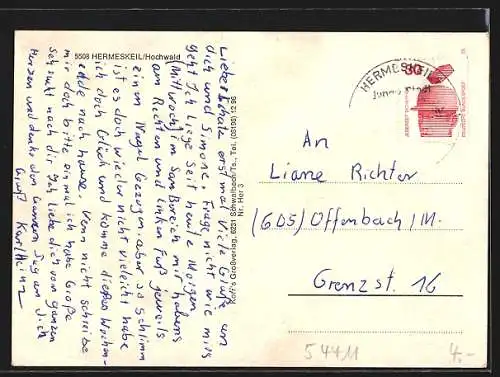 5508 HERMESKEIL/Hochwald
Lieber Schatz erstmal Viele Grüße an
dich und Simone. Frage nicht wie mirs
geht Ich Liege Seit heute Morgen
(Mittwoch) im San Bereich mir habens
am Rechten und linken Fuß jeweils
einen Nagel Gezogen aber so schlimm
ist es doch wieder nicht vielleicht habe
ich doch Glück und komme dieses Wochen-
ende nach hause, wenn nicht schreibe
mir doch bitte einmal ich habe Große
Sehnsucht nach dir Ich Liebe dich von ganzem
Herzen und denke den Ganzen Tag an dich
Gruß Karl Heinz
Koff's Großverlag, 6231 Schwalbach/Ts., Tel. (06196)
Nr. Her 3
HERMESKEIL
60
DEUTSCHE BUNDESPOST
An
Liane Richter
(605) Offenbach/M.
Grenzst. 16
54411
4.-